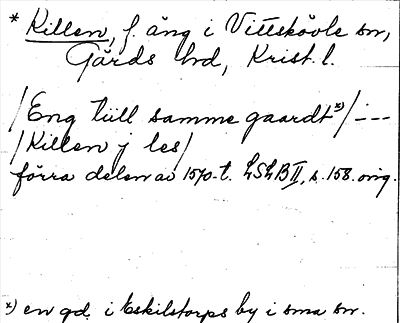 * Killen, f. äng i Vittskövle sn,
Gärds hd, Krist. l.
/Eng tüll samme gaardt*)/---
/Killen j les/
förra delen av 1570-t. LSLB II, s. 158. orig.
*) en gd. i Eskilstorps by i sma sn.